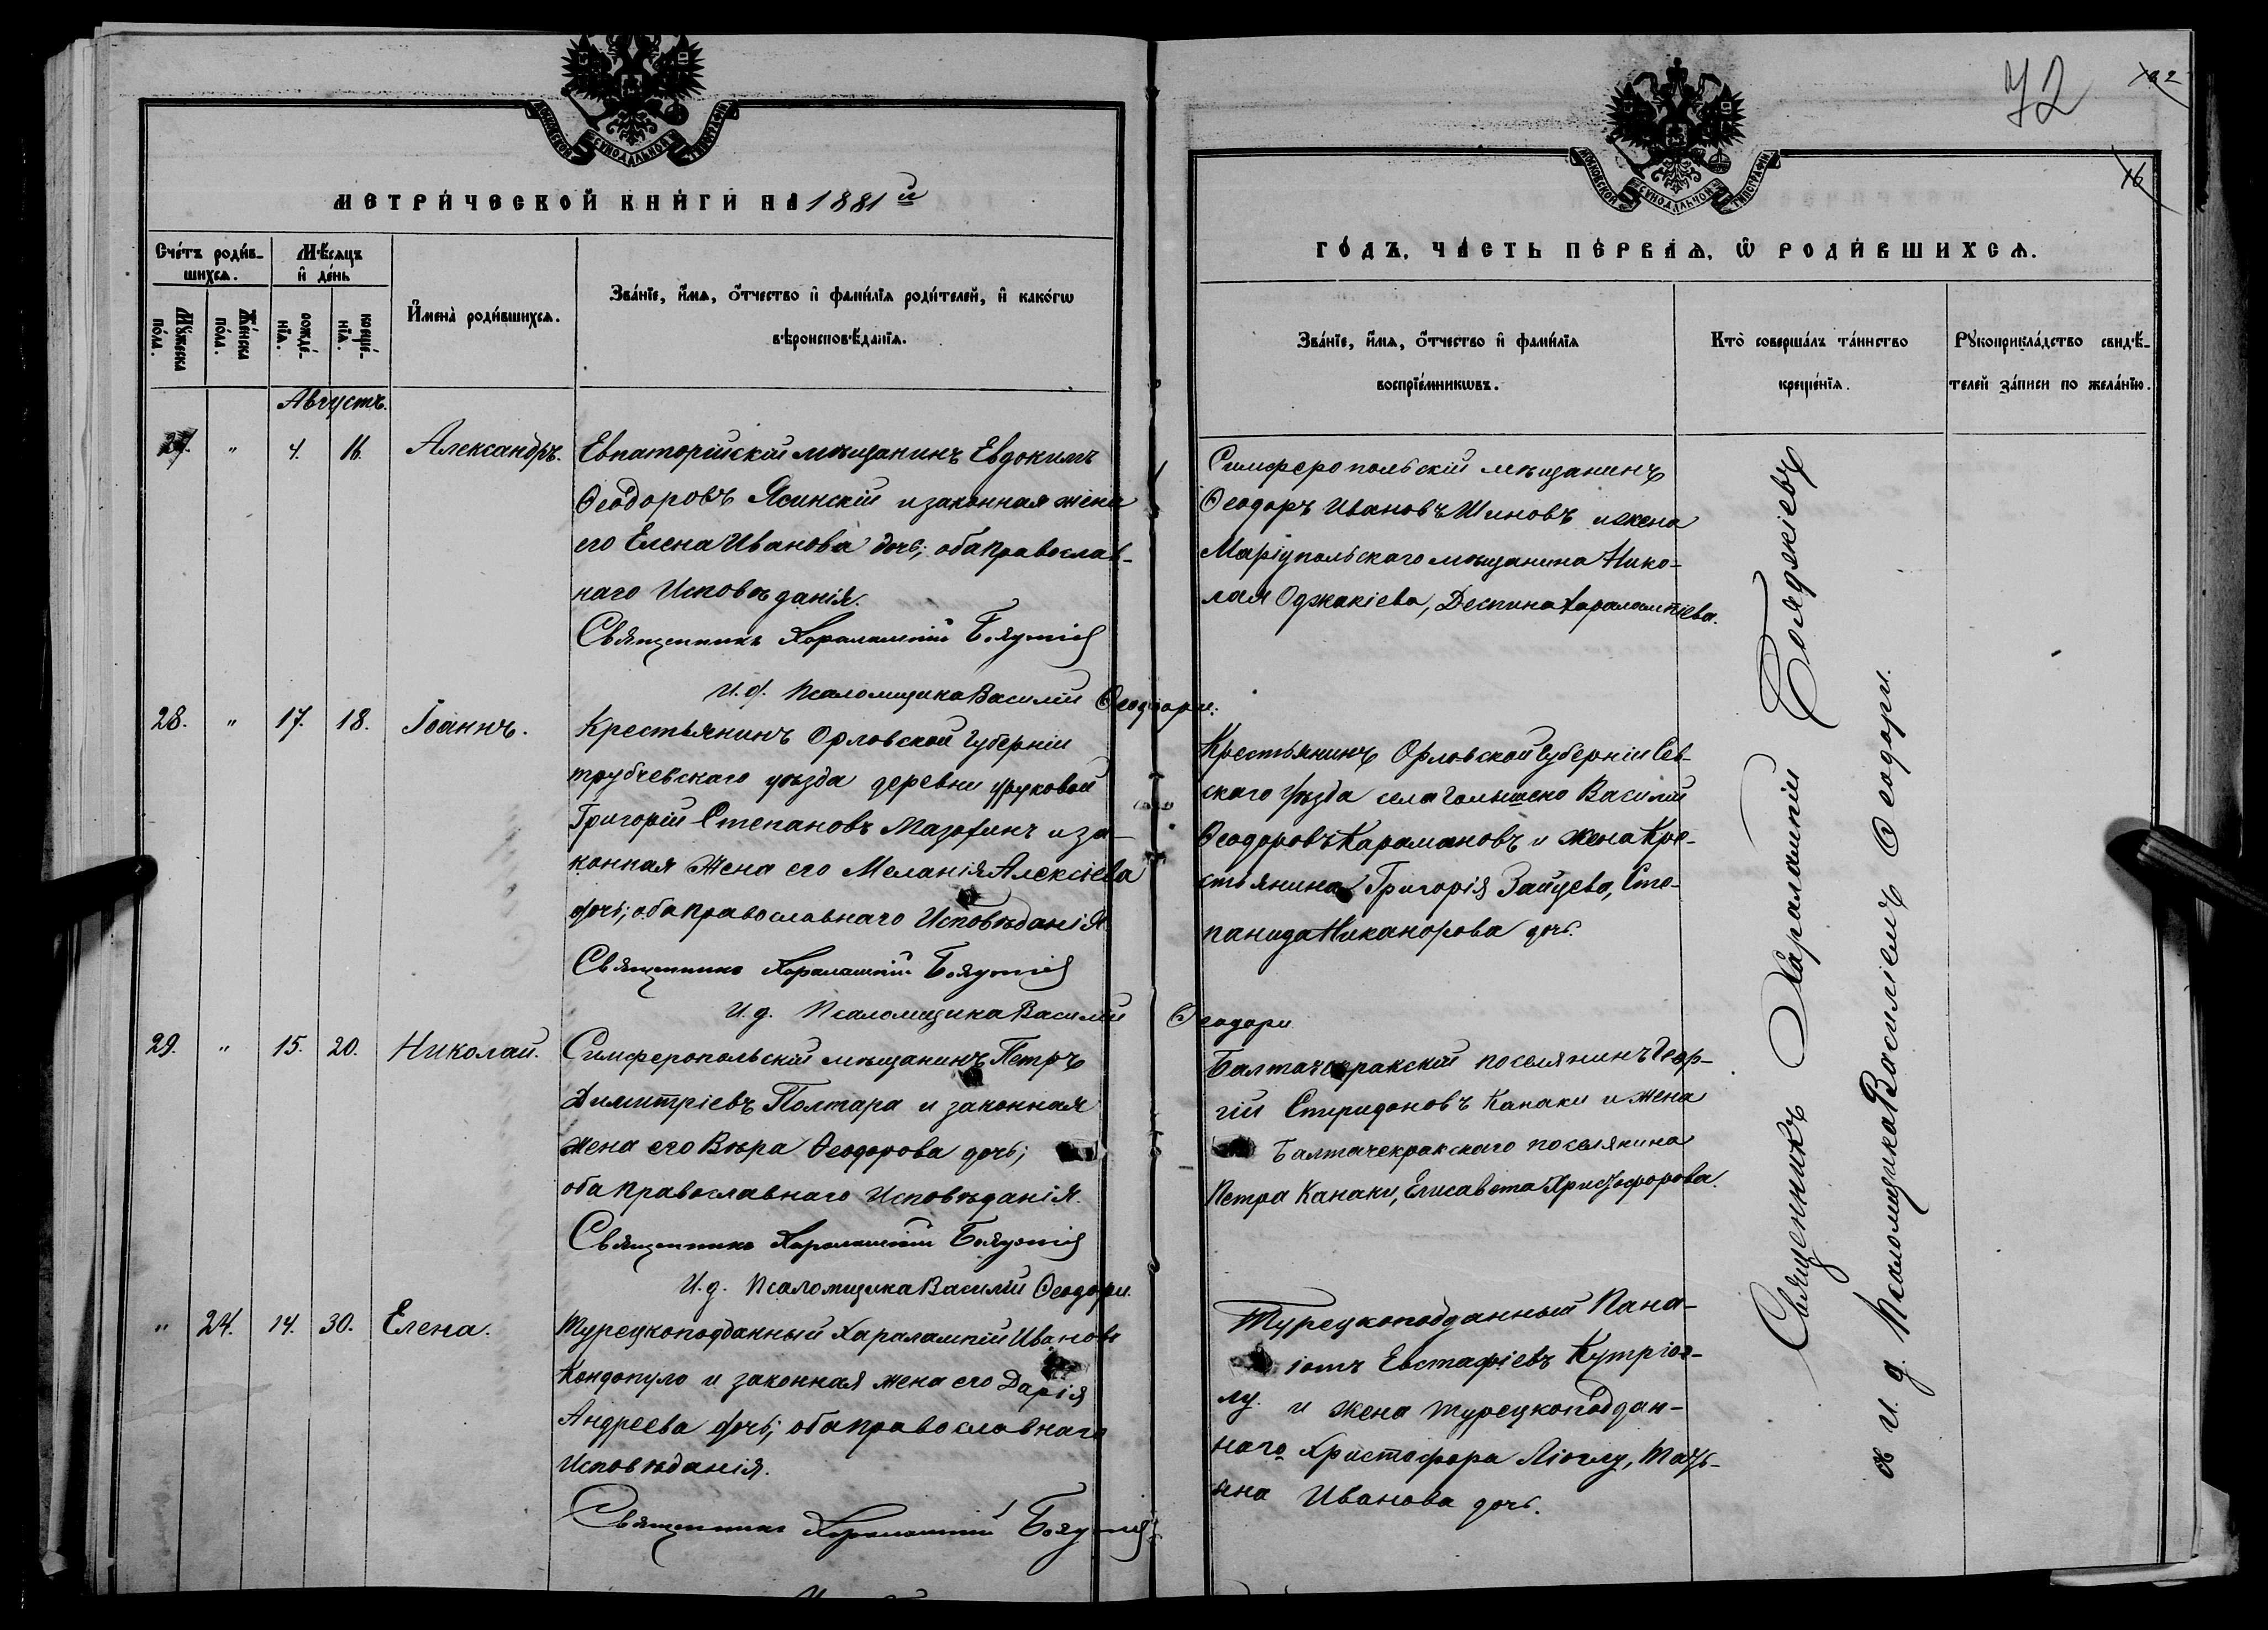 МОСКОВСКОЙ СѴНОДАЛЬНОЙ ТИПОГРАФІИ
МЕТРИ́ЧЕСКОЙ КНИ́ГИ НА 1881 й
Сче́тъ роди́в-
шихсѧ.
Мѣ́сѧцъ
и҆ де́нь
Мꙋ́жеска
по́ла.
Же́нска
по́ла.
рожде́-
нїѧ.
креще́-
нїѧ.
И҆мена̀ роди́вшихсѧ.
Зва́нїе, и҆́мѧ, о҆́тчество и҆ фамі́лїѧ роди́телей, и҆ како́гѡ
вѣроисповѣ́данїѧ.
Августъ.
27. " 4. 16. Александръ.
Евпаторійскій мѣщанинъ Евдокимъ
Ѳеодоровъ Ясинскій и законная жена
его Елена Иванова дочь; оба православ-
наго Исповѣданія.
Священникъ Харалампій
И. д. Псаломщика Василій Ѳеодори.
28. " 17. 18. Іоаннъ.
Крестьянинъ Орловской Губерніи
трубчевскаго уѣзда деревни
Григорій Степановъ Мазохинъ и за-
конная жена его Меланія Алексіева
дочь; оба православнаго Исповѣданія.
Священникъ Харалампій
И. д. Псаломщика Василій Ѳеодори
29. " 15. 20. Николай.
Симферопольскій мѣщанинъ Петръ
Димитріевъ Полтара и законная
жена его Вѣра Ѳеодорова дочь;
оба православнаго Исповѣданія.
Священникъ Харалампій
И. д. Псаломщика Василій Ѳеодори.
" 24. 14. 30. Елена.
Турецкоподданный Харалампій Ивановъ
Кондопуло и законная жена его Дарія
Андреева дочь; оба православнаго
Исповѣданія.
Священникъ Харалампій
72
16
МОСКОВСКОЙ СѴНОДАЛЬНОЙ ТИПОГРАФІИ
ГО́ДЪ. ЧА́СТЬ ПЕ́РВАѦ, Ѡ҆ РОДИ́ВШИХСѦ.
Зва́нїе, и҆́мѧ, о҆́тчество и҆ фамі́лїѧ
воспрїе́мникѡвъ.
Кто̀ соверша́лъ та́инство
креще́нїѧ.
Рꙋкоприкла́дство свидѣ́-
телей за́писи по жела́нїю.
Симферопольскій мѣщанинъ
Ѳеодоръ Ивановъ Шиновъ и жена
Маріупольскаго мѣщанина Нико-
лая Оджакіева, Деспина Харалампіева.
Крестьянинъ Орловской Губерніи Сев-
скаго уѣзда села Василій
Ѳеодоровъ Карамановъ и жена Кре-
стьянина Григорія Зайцева, Сте-
панида Никанорова дочь.
Балтачокракскій поселянинъ Геор-
гій Спиридоновъ Канаки и жена
Балтачекракскаго поселянина
Петра Канаки, Елисавета Христофорова.
Турецкоподданный Пана-
іотъ Евстафіевъ Кутріог-
лу. и жена турецкоподдан-
наго Христофора Ліоглу, Тать-
яна Иванова дочь.
Священникъ Харалампій
съ и. д. Псаломщика Василіемъ Ѳеодори.